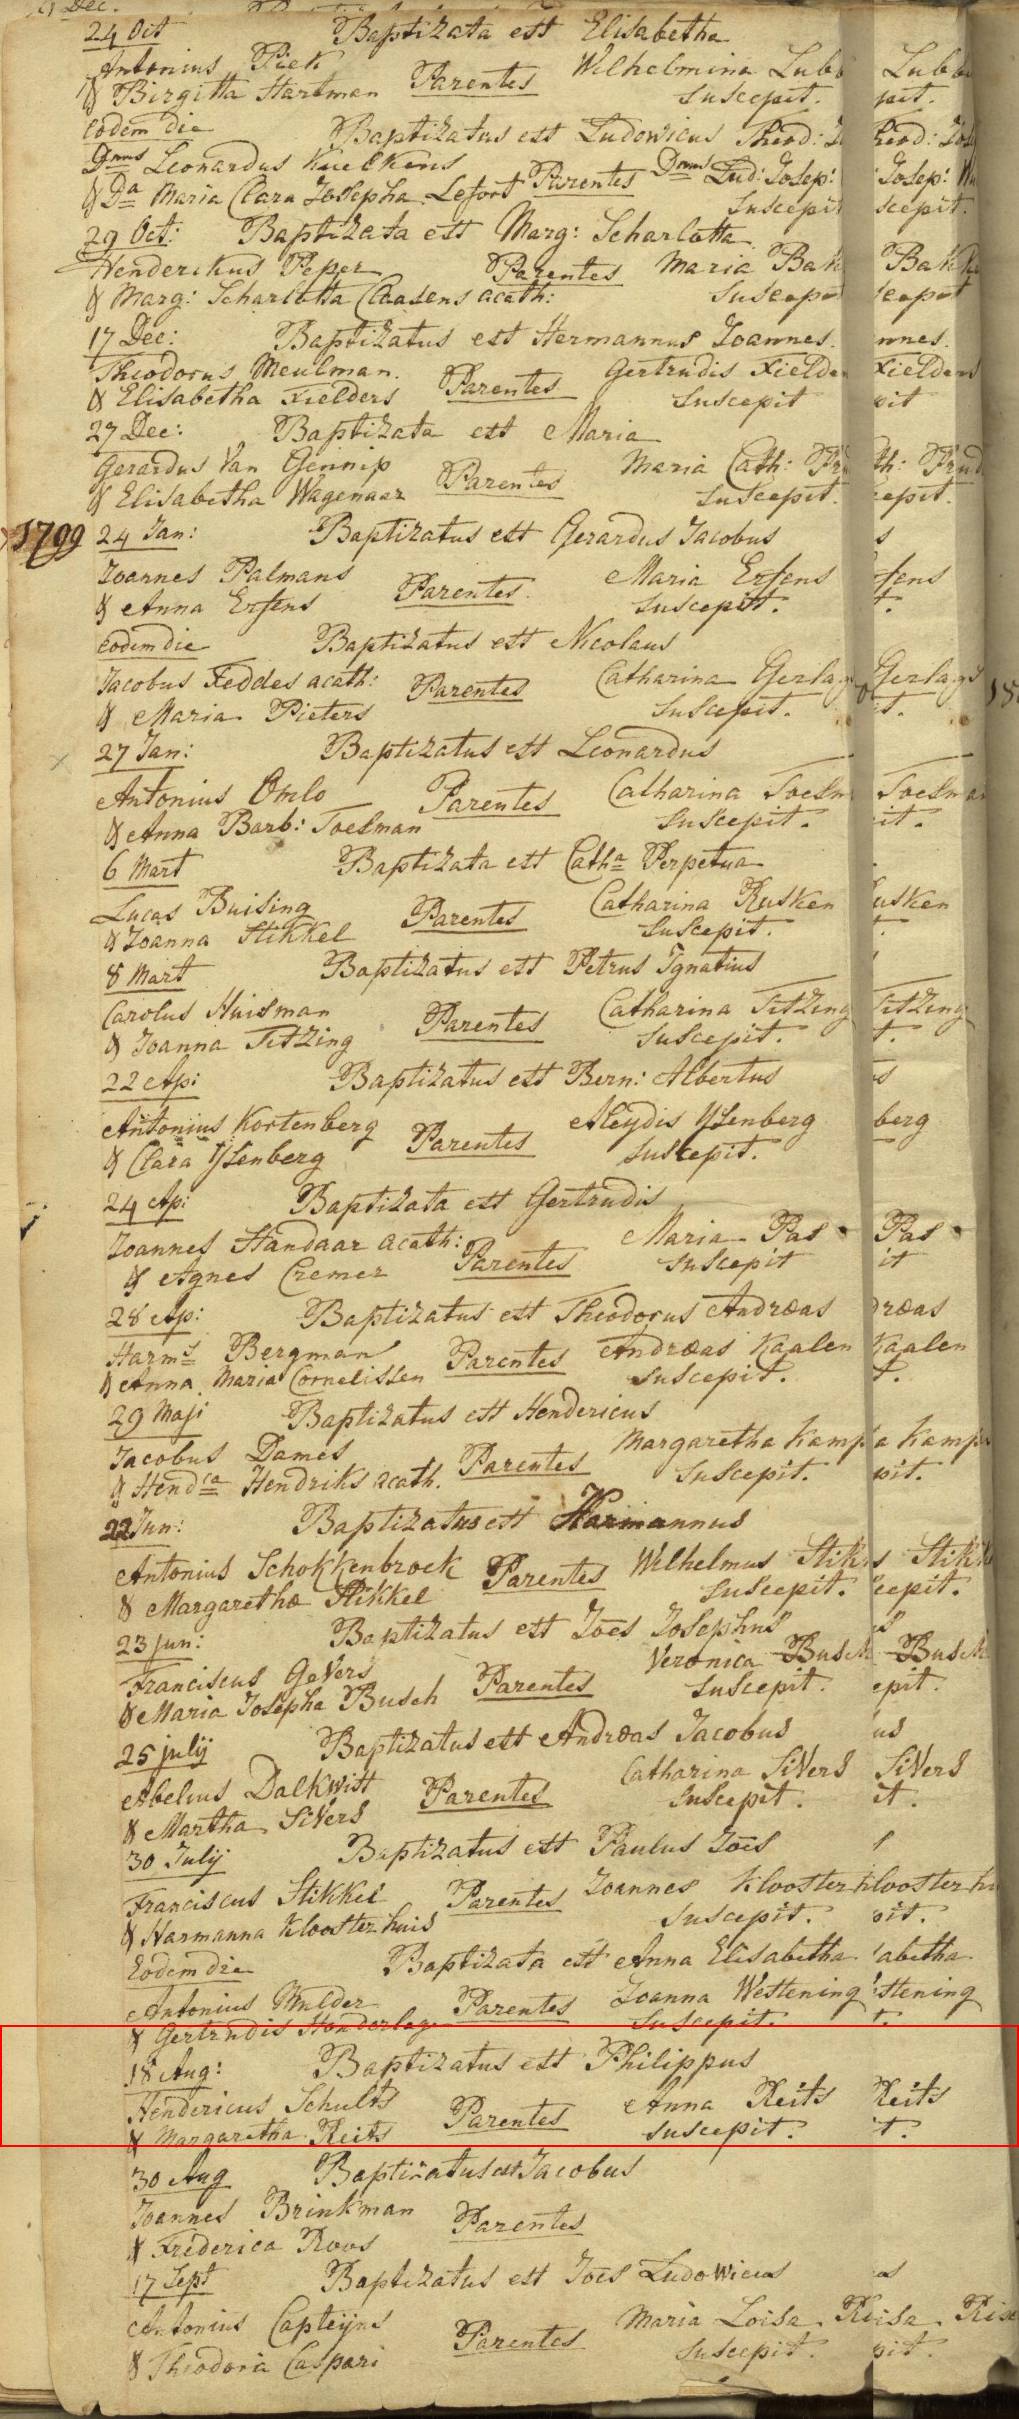 24 Oct Baptizata est Elisabetha
Antonius Piek Parentes Wilhelmina Lubb
& Birgitta Hartman suscepit.
eodem die Baptizatus est Ludovicus Theod:
Dnus Leonardus Kuekkens Parentes Dnus Lud: Josep:
& Da Maria Clara Josepha Lefort suscepit
29 Oct: Baptizata est Marg: Scharlotta
Henderikus Peper Parentes Maria Bak
& Marg: Scharlotta Claasens acath: suscepit
17 Dec: Baptizatus est Hermannus Joannes.
Theodorus Meulman. Parentes Gertrudis Fielders
& Elisabetha Fielders suscepit
27 Dec: Baptizata est Maria
Gerardus Van Gennip Parentes Maria Cath:
& Elisabetha Wagenaar suscepit.
1799 24 Jan: Baptizatus est Gerardus Jacobus
Joannes Palmans Parentes Maria Ersens
& Anna Ersens suscepit.
eodem die Baptizatus est Nicolaus
Jacobus Feddes acath: Parentes Catharina Gerlags
& Maria Pieters suscepit.
27 Jan: Baptizatus est Leonardus
Antonius Omlo Parentes Catharina Toelman
& Anna Barb: Toelman suscepit.
6 Mart Baptizata est Catha Perpetua
Lucas Buising Parentes Catharina Rusken
& Joanna Stikkel suscepit.
8 Mart Baptizatus est Petrus Ignatius
Carolus Huisman Parentes Catharina Titzing
& Joanna Titzing suscepit.
22 Ap: Baptizatus est Bern: Albertus
Antonius Kortenberg Parentes Aleydis Ysenberg
& Clara Ysenberg suscepit.
24 Ap: Baptizata est Gertrudis
Joannes Standaar acath: Parentes Maria Pas
& Agnes Cremer suscepit
28 Ap: Baptizatus est Theodorus Andræas
Harms Bergman Parentes Andræas Kaalen
& Anna Maria Cornelissen suscepit.
29 Maji Baptizatus est Hendericus
Jacobus Dames Parentes Margaretha Kamp
& Hendca Hendriks acath. suscepit.
22 Jun: Baptizatus est Harmannus
Antonius Schokkenbroek Parentes Wilhelmus Stikk
& Margaretha Stikkel suscepit.
23 jun: Baptizatus est Joes Josephus
Franciscus Gevers Parentes Veronica Busch
& Maria Josepha Busch suscepit.
25 julij Baptizatus est Andræas Jacobus
Abelius Dalkwist Parentes Catharina Sivers
& Martha Sivers suscepit.
30 July Baptizatus est Paulus Joes
Franciscus Stikkel Parentes Joannes Klooster
& Harmanna Kloosterhuis suscepit.
Eodem die Baptizata est Anna Elisabetha
Antonius Mulder Parentes Joanna Westening
& Gertrudis Honderlage suscepit.
18 Aug: Baptizatus est Philippus
Hendericus Schults Parentes Anna Reits
& Margaretha Reits suscepit.
30 Aug Baptizatus est Jacobus
Joannes Brinkman Parentes
& Frederica Roos
17 Sept Baptizatus est Joes Ludowicus
Antonius Capteijns Parentes Maria Loisa
& Theodora Caspari suscepit.